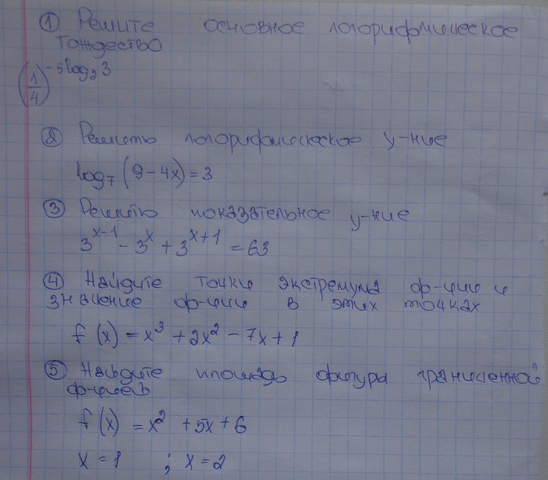 ① Решите основное логорифмическое
тождество
(1/4)^(-5log₂3)
② Решить логорифмическое у-ние
log₇(9-4x)=3
③ Решить показательное у-ние
3^(x-1) - 3^x + 3^(x+1) = 63
④ Найдите точки экстремума ф-ции и
значение ф-ции в этих точках
f(x) = x³ + 2x² - 7x + 1
⑤ Найдите площадь фигуры граниченной
ф-цией
f(x) = x² + 5x + 6
x = 1 ; x = 2